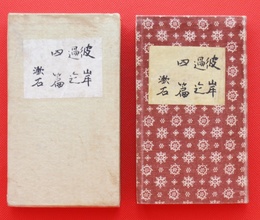 彼岸
過迄
四篇
漱石
彼岸
過迄
四篇
漱石